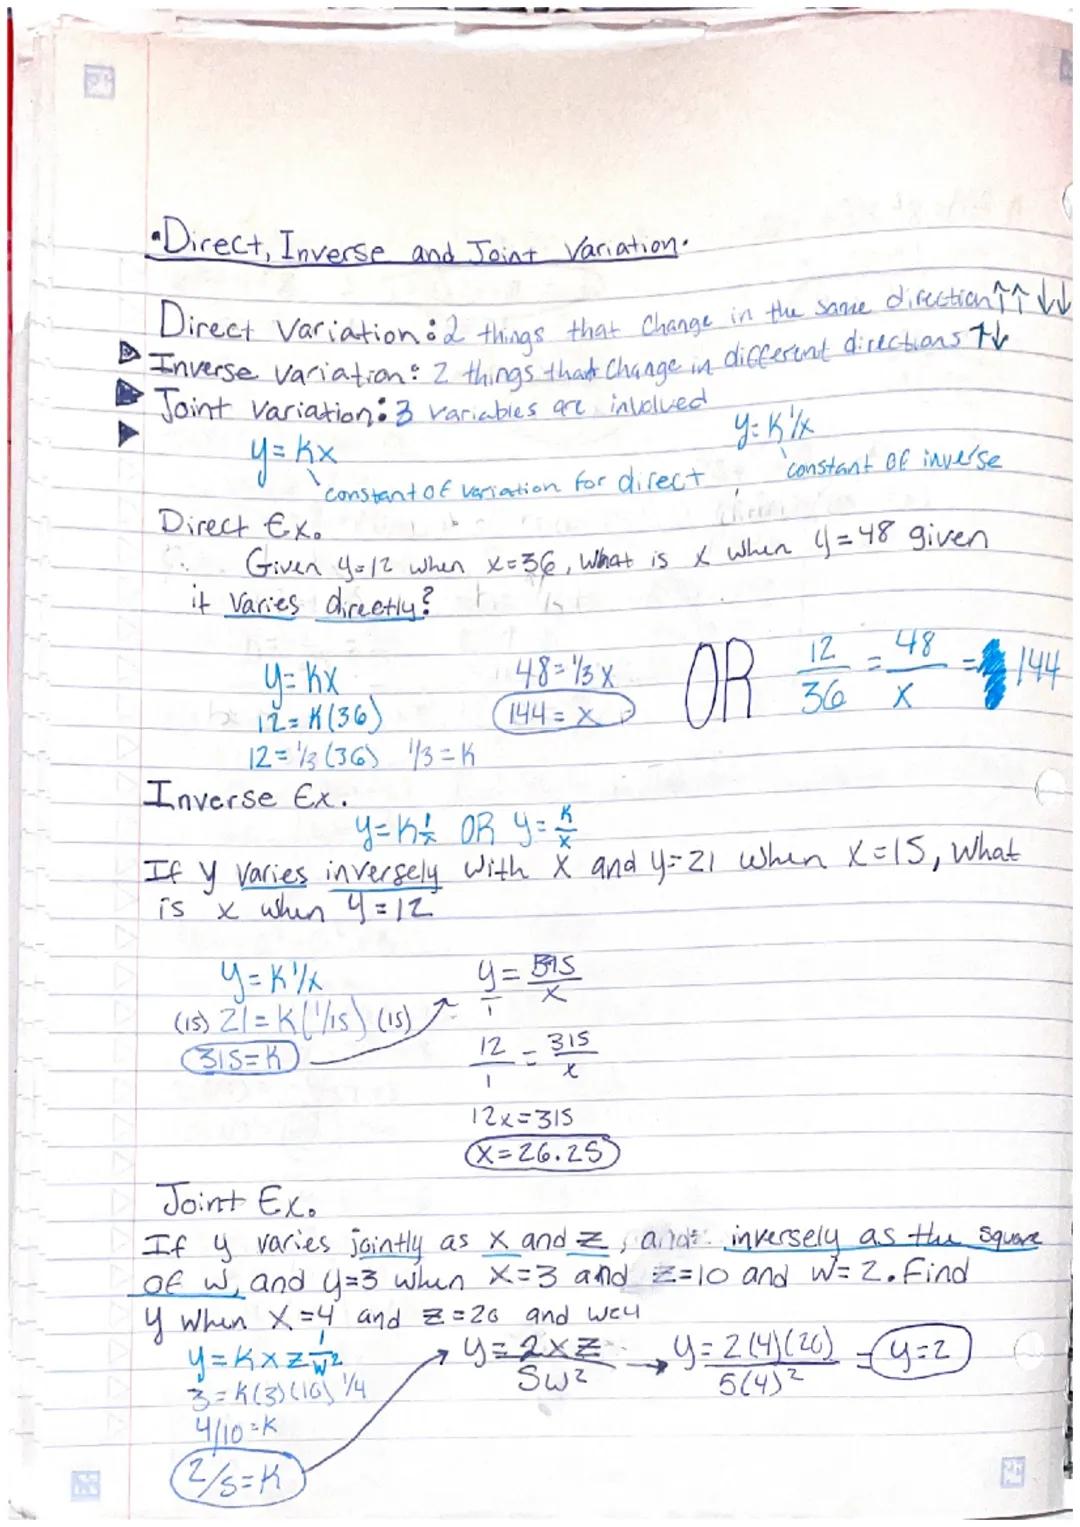 •Direct, Inverse and Joint Variation•
Direct Variation: 2 things that change in the same direction ↑↑ ↓↓
Inverse variation: 2 things that change in different directions ↑↓
Joint variation: 3 variables are involved
y=kx y=k1/x
constant of variation for direct constant of inverse
Direct Ex.
Given y=12 when x=36, what is x when y=48 given
it varies directly?
y=kx 48=1/3x OR 12/36 = 48/x = 144
12=k(36) 144=x
12=1/3(36) 1/3=k
Inverse Ex.
y=k1/x OR y=k/x
If y varies inversely with x and y=21 when x=15, what
is x when y=12
y=k1/x y/1=315/x
(15) 21=k(1/15) (15)
315=k 12/1=315/x
12x=315
x=26.25
Joint Ex.
If y varies jointly as x and z, and inversely as the square
of w, and y=3 when x=3 and z=10 and w=2. Find
y when x=4 and z=20 and w=4
y=kxz1/w² y=2xz/5w² → y=2(4)(20)/5(4)² = y=2
3=k(3)(10)1/4
4/10=k
2/5=k